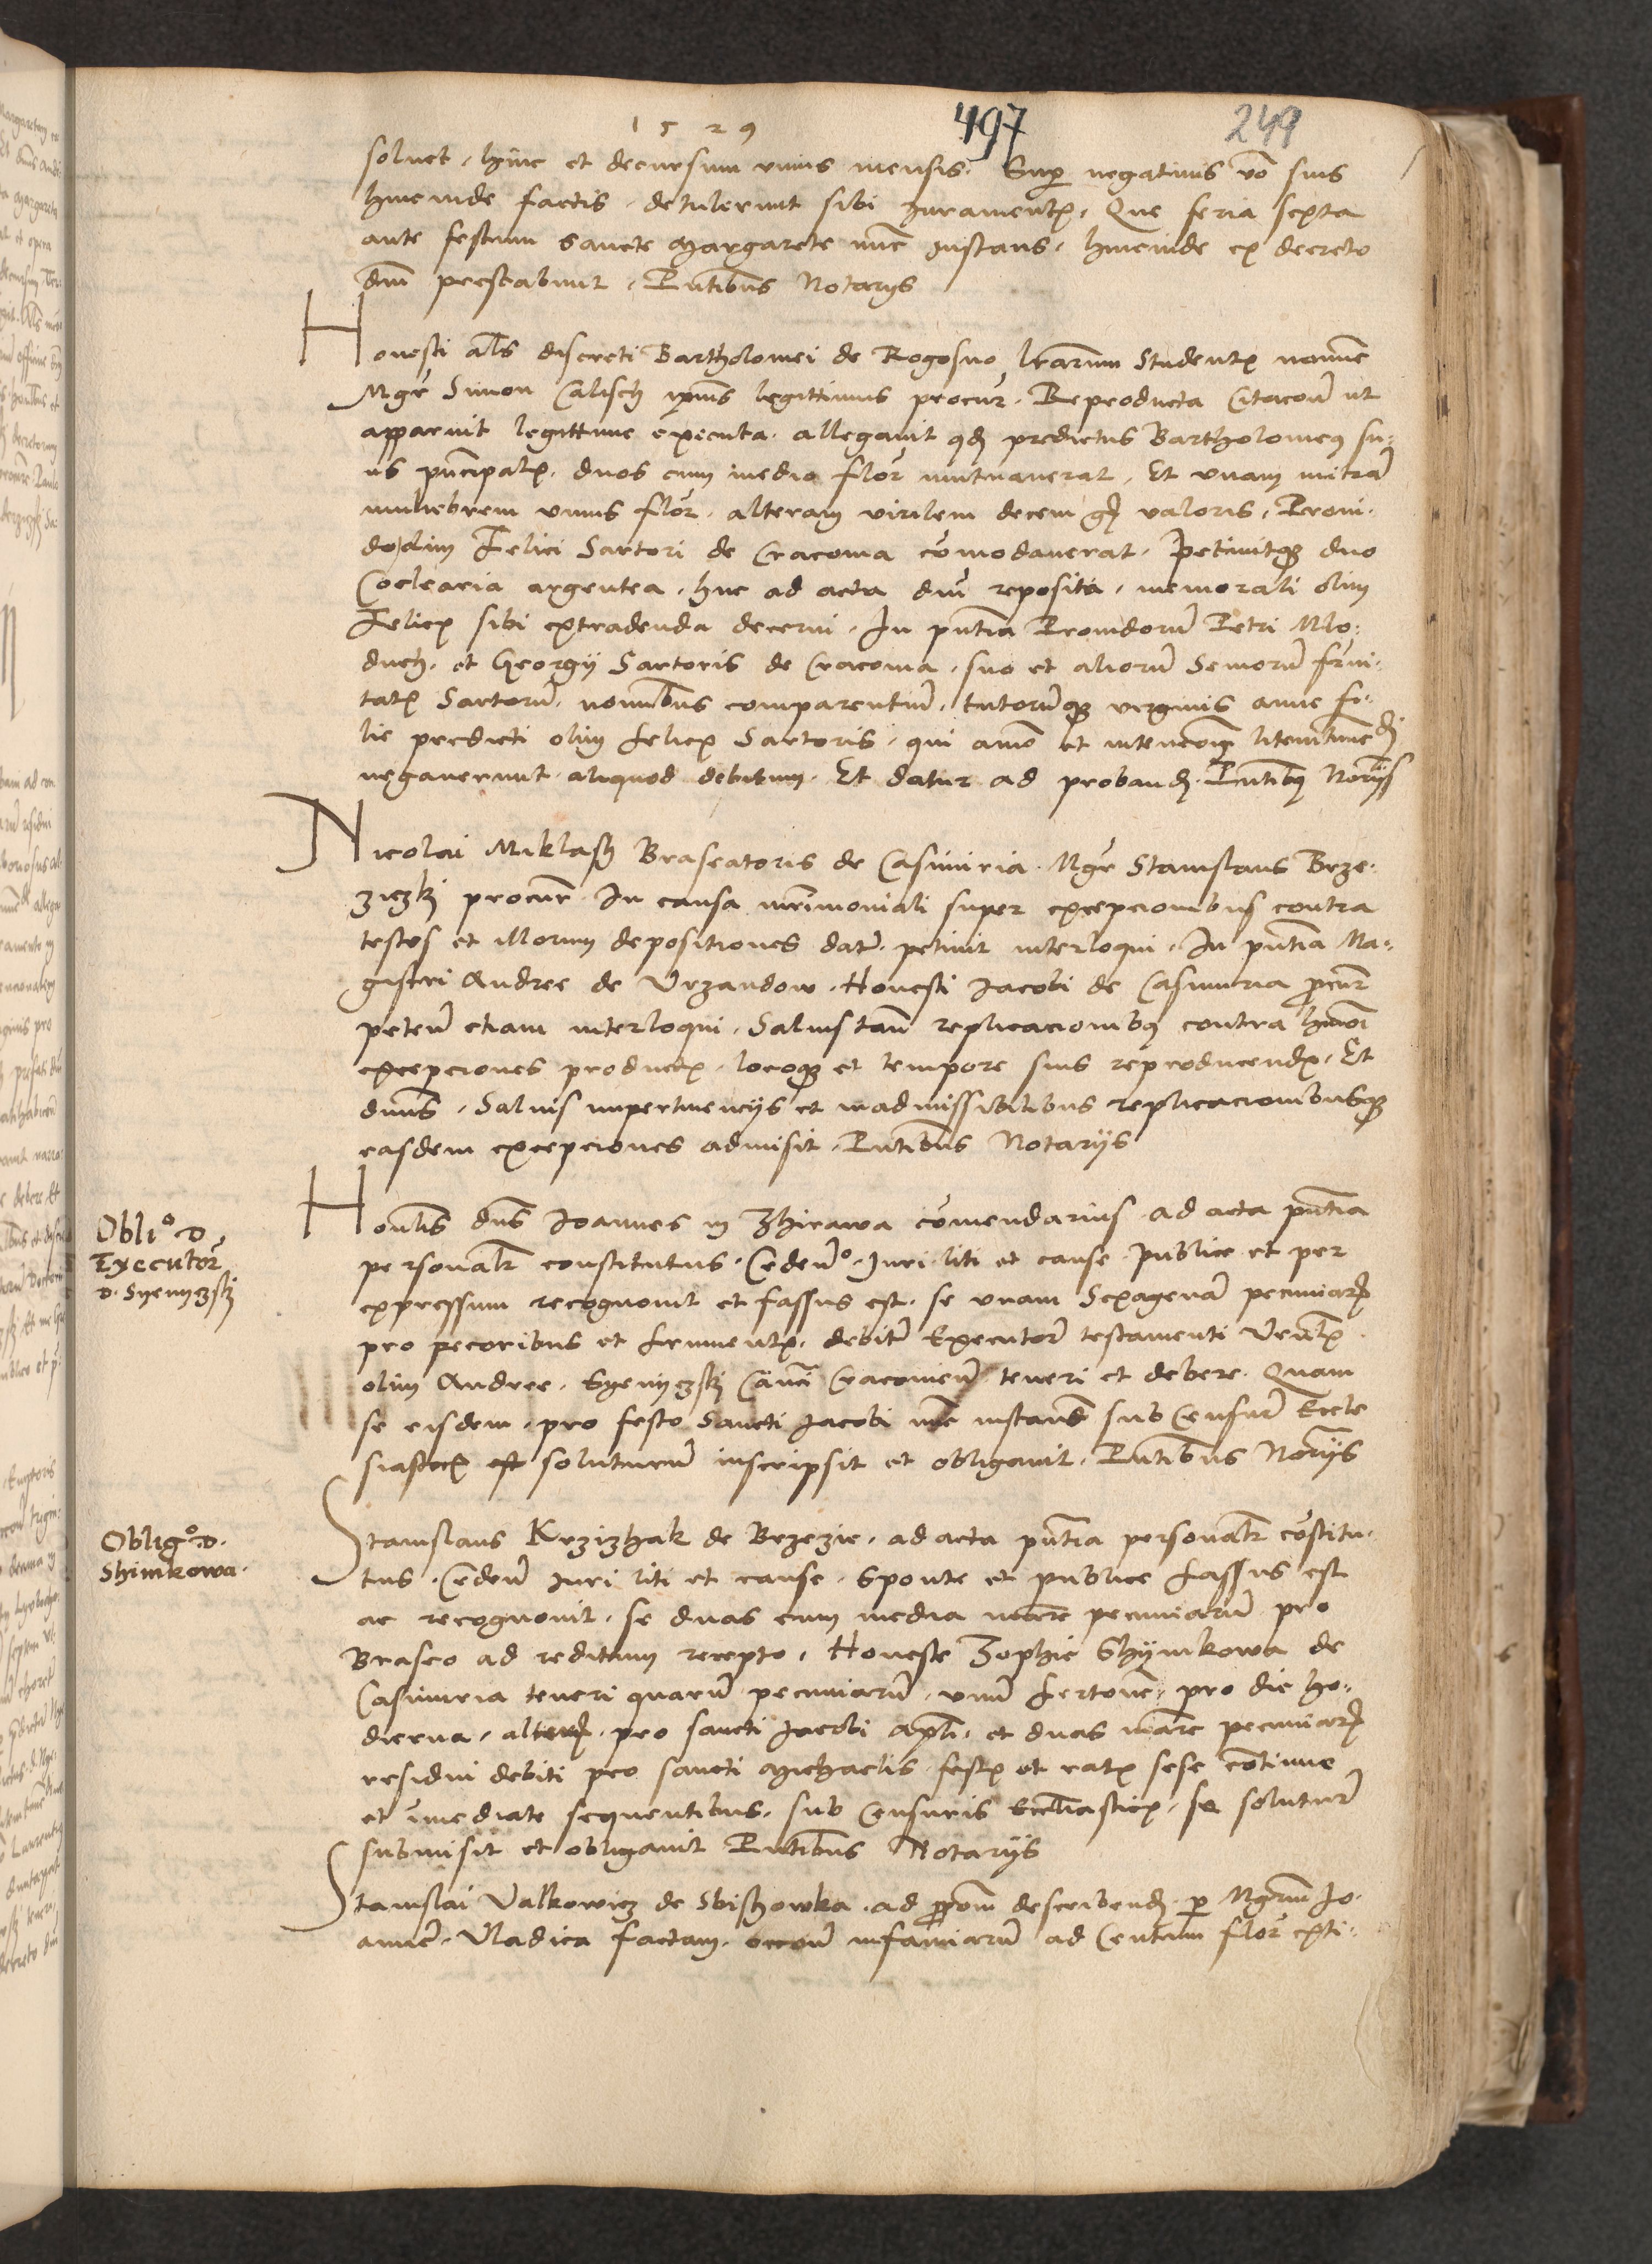 1529
497
249
soluet, hinc et decursum vnius mensis. Sup negatiuis vo suis
hincinde factis, detulerunt sibi Juramenta, Que feria sexta
ante festum sancte Margarete nunc Instans, hincinde ex decreto
dni prestabunt, Pntibus Notarys
Honesti als discreti Bartholomei de Rogosno lrarum Studentis nomine
Mgr Simon Calisch ipius legittimus procur. Reproducta Citacone ut
apparuit legittime executa, allegauit qd predictus Bartholomeus su-
us pncipalis, duos cum medio flor mutuauerat, Et vnam mitra
muliebrem vnius flor, alteram virilem decem gr valoris, Proui-
do olim Felici Sartori de Cracouia comodauerat, petiuitque duo
Coclearia argentea, huc ad acta dni reposita, memorati olim
Felicis sibi extradenda decerni, In pntia Prouidoru Petri Mlo-
duch, et Georgij Sartoris de Cracouia, suo et alioru Senioru frni-
tatis Sartoru, nominibus comparentiu, tutorumque virginis anne fi-
lie predicti olim Felicis Sartoris, qui animo et intencione litem
negauerunt aliquod debitum. Et datur ad proband. Pntibus Norijs
Nicolai Miklasch Braseatoris de Casimiria, Mgr Stanislaus Brze-
ziczki procur In causa mrimoniali super excepcionibus contra
testes et illorum depositiones dat, petiuit interloqui, In pntia Ma-
gistri Andree de Vrzandow, Honesti Jacobi de Casimiria procur
peten etiam interloqui, Saluis tam replicacionibus contra hmoi
excepciones productis, locoque et tempore suis reproducendis, Et
dnus, Saluis impertinencijs et inadmissibilibus replicacionibusque
easdem excepciones admisit, Pntibus Notarijs
Oblio D
Executor
D. Syenyczski
Honlis dns Joannes in Zhirawa comendarius ad acta pntia
personalr constitutus, Cedendo Juri liti et cause publice et per
expressum recognouit et fassus est, se vnam Sexagenam pecuniar
pro pecoribus et frumentis, debitam Executor testamenti Venlis
olim Andree, Syenyczski Canci Cracouien teneri et debere, Quam
se eisdem, pro festo Sancti Jacobi nunc instan sub Censur Eccle
siasticis est soluturum inscripsit et obligauit, Pntibus Norijs
Obligo D.
Shimkowa.
Stanislaus Krzizhak de Brzezie, ad acta pntia personalr costitu-
tus, Ceden Juri liti et cause, sponte et publice fassus est
ac recognouit, se duas cum media marc pecuniaru pro
Braseo ad reditum recepto, Honeste Zophie Shymkowa de
Casimiria teneri quaru pecuniaru, vnu fertone, pro die ho-
dierna, alteru, pro sancti Jacobi apli, et duas marc pecuniar
residui debiti pro sancti Michaelis festis et ratis sese continue
et imediate sequentibus, sub Censuris Eccliasticis, se solutur
submisit et obligauit Pntibus Notarijs
Stanislai Valkowicz de Sbischowka, ad describend p Mgrum Jo-
annem, Vladica factam, infamiaru ad Centum flor exti-